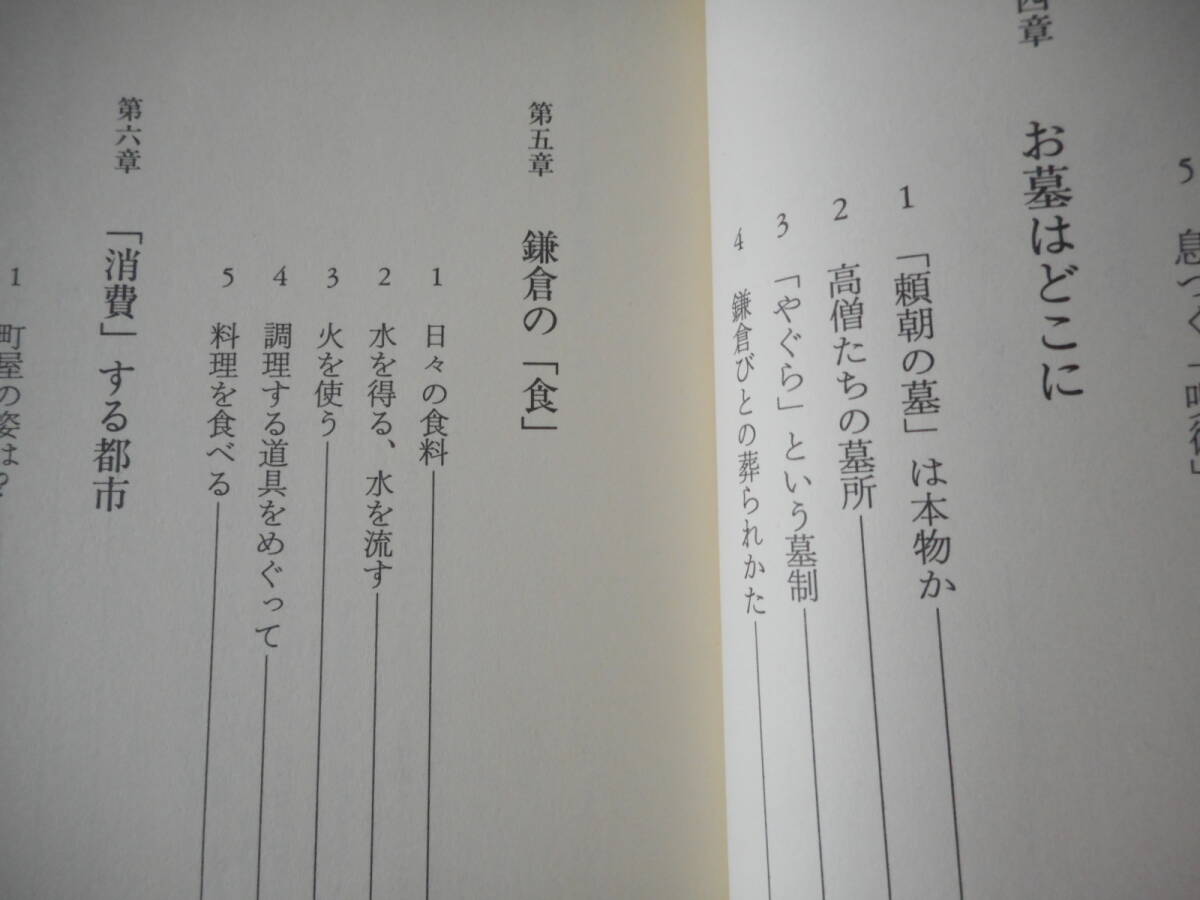 5 息つく「
四章 お墓はどこに
1 「頼朝の墓」は本物か
2 高僧たちの墓所
3 「やぐら」という墓制
4 鎌倉びとの葬られかた
第五章 鎌倉の「食」
1 日々の食料
2 水を得る、水を流す
3 火を使う
4 調理する道具をめぐって
5 料理を食べる
第六章 「消費」する都市
1 町屋の姿は?